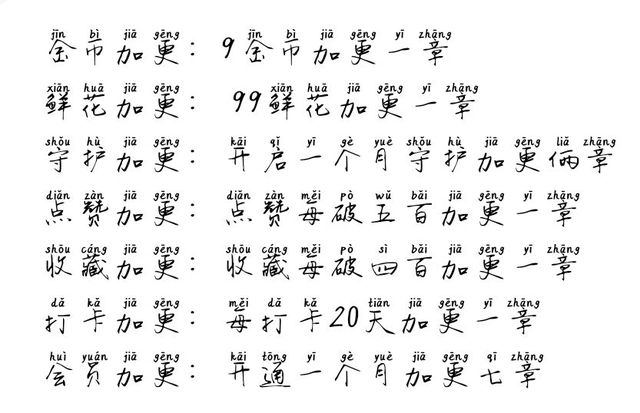 jīn bì jiā gēng jīn bì jiā gēng yī zhāng
金币加更：9金币加更一章
xiān huā jiā gēng xiān huā jiā gēng yī zhāng
鲜花加更：99鲜花加更一章
shǒu hù jiā gēng kāi qǐ yī gè yuè shǒu hù jiā gēng liǎ zhāng
守护加更：开启一个月守护加更俩章
diǎn zàn jiā gēng diǎn zàn měi pò wǔ bǎi jiā gēng yī zhāng
点赞加更：点赞每破五百加更一章
shōu cáng jiā gēng shōu cáng měi pò sì bǎi jiā gēng yī zhāng
收藏加更：收藏每破四百加更一章
dǎ kǎ jiā gēng měi dǎ kǎ tiān jiā gēng yī zhāng
打卡加更：每打卡20天加更一章
huì yuán jiā gēng kāi tōng yī gè yuè jiā gēng qī zhāng
会员加更：开通一个月加更七章